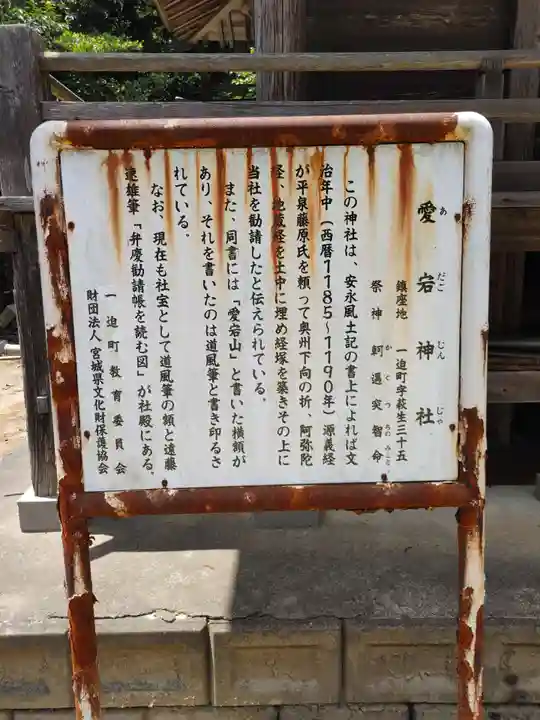 愛宕神社
あだごじんじゃ
鎮座地　一迫町字荻生三十五
祭神　軻遇突智命
かぐつちのみこと
この神社は、安永風土記の書上によれば文
治年中（西暦1185～1190年）源義経
が平泉藤原氏を頼って奥州下向の折、阿弥陀
経、地蔵経を土中に埋め経塚を築きその上に
当社を勧請したと伝えられている。
また、同書には「愛宕山」と書いた横額が
あり、それを書いたのは道風筆と書き印るさ
れている。
なお、現在も社宝として道風筆の額と遠藤
速雄筆「弁慶勧請帳を読む図」が社殿にある。
一迫町教育委員会
財団法人宮城県文化財保護協会